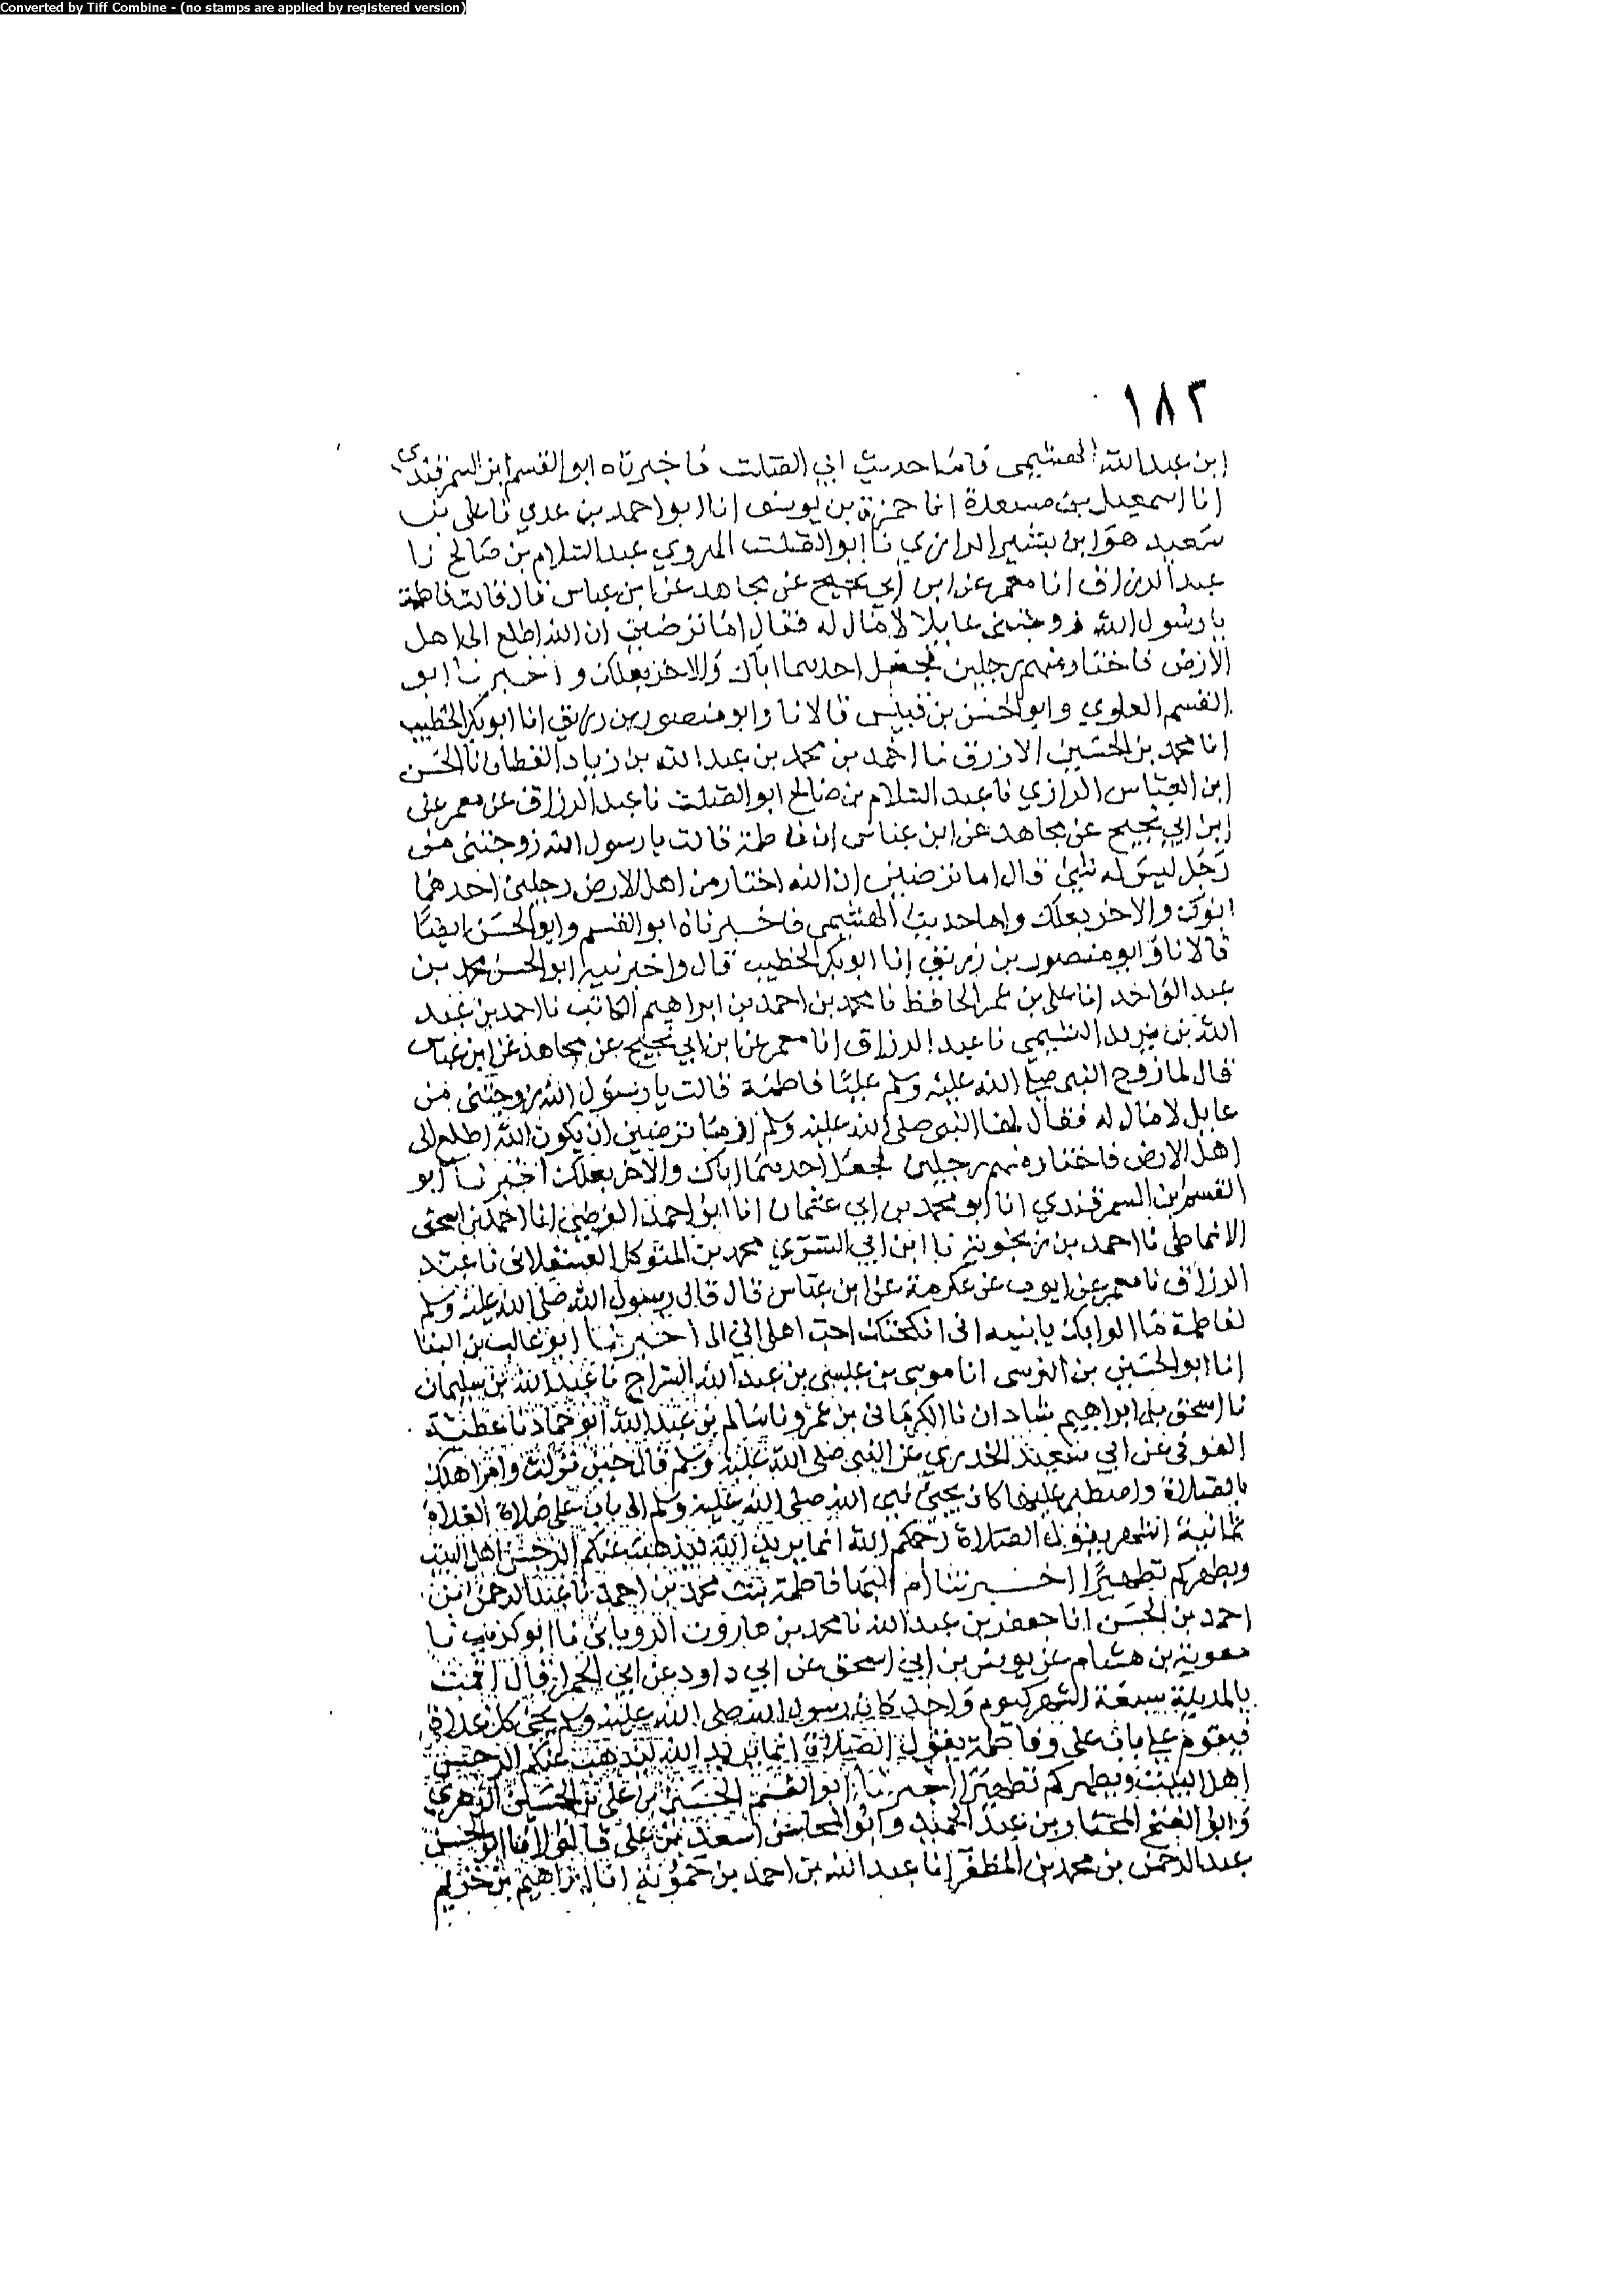 Converted by Tiff Combine - (no stamps are applied by registered version)
١٨٢
ابن عبد الله الهشيمي فاما حديث ابي الصلت فاخبرناه ابو القسم ابن السمرقندي
انا اسمعيل بن مسعدة انا حمزة بن يوسف انا ابو احمد بن عدي نا علي بن
سعيد هو ابن بشير الرازي نا ابو الصلت الهروي عبد السلام بن صالح نا
عبد الرزاق انا معمر عن ابن ابي نجيح عن مجاهد عن ابن عباس قال قالت فاطمة
يا رسول الله زوجتني عايلا لا مال له فقال اما ترضين ان الله اطلع الى اهل
الارض فاختار منهم رجلين فجعل احدهما اباك والاخر بعلك واخبرنا ابو
القسم العلوي وابو الحسن بن قبيس قالا نا وابو منصور بن زريق انا ابو بكر الخطيب
انا محمد بن الحسين الازرق نا احمد بن محمد بن عبد الله بن زياد القطان نا الحسن
ابن العباس الرازي نا عبد السلام بن صالح ابو الصلت نا عبد الرزاق عن معمر عن
ابن ابي نجيح عن مجاهد عن ابن عباس ان فاطمة قالت يا رسول الله زوجتني من
رجل ليس له شيئ قال اما ترضين ان الله اختار من اهل الارض رجلين احدهما
ابوك والاخر بعلك واما حديث الهشيمي فاخبرناه ابو القسم وابو الحسن ايضا
قالا نا وابو منصور بن زريق انا ابو بكر الخطيب قال واخبرنيه ابو الحسن محمد بن
عبد الواحد انا علي بن عمر الحافظ نا محمد بن احمد بن ابراهيم الكاتب نا احمد بن عبد
الله بن يزيد الهشيمي نا عبد الرزاق انا معمر عن ابن ابي نجيح عن مجاهد عن ابن عباس
قال لما زوج النبي صلى الله عليه وسلم عليا فاطمة قالت يا رسول الله زوجتني من
عايل لا مال له فقال لها النبي صلى الله عليه وسلم اوما ترضين ان يكون الله اطلع الى
اهل الارض فاختار منهم رجلين فجعل احدهما اباك والاخر بعلك اخبرنا ابو
القسم ابن السمرقندي انا ابو محمد بن ابي عثمان انا ابو احمد الفرضي انا احمد بن اسحق
الانماطي نا احمد بن زنجويه نا ابن ابي السري محمد بن المتوكل العسقلاني نا عبد
الرزاق نا معمر عن ايوب عن عكرمة عن ابن عباس قال قال رسول الله صلى الله عليه وسلم
لفاطمة ما الوابك يا بنيه اني انكحتك احب اهلي الي اخبرنا ابو غالب بن البنا
انا ابو الحسين بن النرسي انا موسى بن عيسى بن عبد الله السراج نا عبد الله بن سليمان
نا اسحق بن ابراهيم شاذان نا الكرماني بن عمرو نا سالم بن عبد الله ابو حماد نا عطية
العوفي عن ابي سعيد الخدري عن النبي صلى الله عليه وسلم قال حين نزلت وامر اهلك
بالصلاة واصطبر عليها كان يجيئ نبي الله صلى الله عليه وسلم الى باب علي صلاة الغداة
ثمانية اشهر يقول الصلاة رحمكم الله انما يريد الله ليذهب عنكم الرجس اهل البيت
ويطهركم تطهيرا اخبرتنا ام البها فاطمة بنت محمد بن احمد نا عبد الرحمن بن
احمد بن الحسن انا جعفر بن عبد الله نا محمد بن هارون الروياني نا ابو كريب نا
معوية بن هشام عن يونس بن ابي اسحق عن ابي داود عن ابي الحمرا قال اقمت
بالمدينة سبعة اشهر كيوم واحد كان رسول الله صلى الله عليه وسلم يجئ كل غداة
فيقوم على باب علي وفاطمة يقول الصلاة انما يريد الله ليذهب عنكم الرجس
اهل البيت ويطهركم تطهيرا اخبرنا ابو القسم الحسين بن علي بن الحسين الزهري
وابو الفتح المختار بن عبد الحميد وابو المحاسن اسعد بن علي قالوا انا ابو الحسن
عبد الرحمن بن محمد بن المظفر انا عبد الله بن احمد بن حموية انا ابراهيم بن خزيم